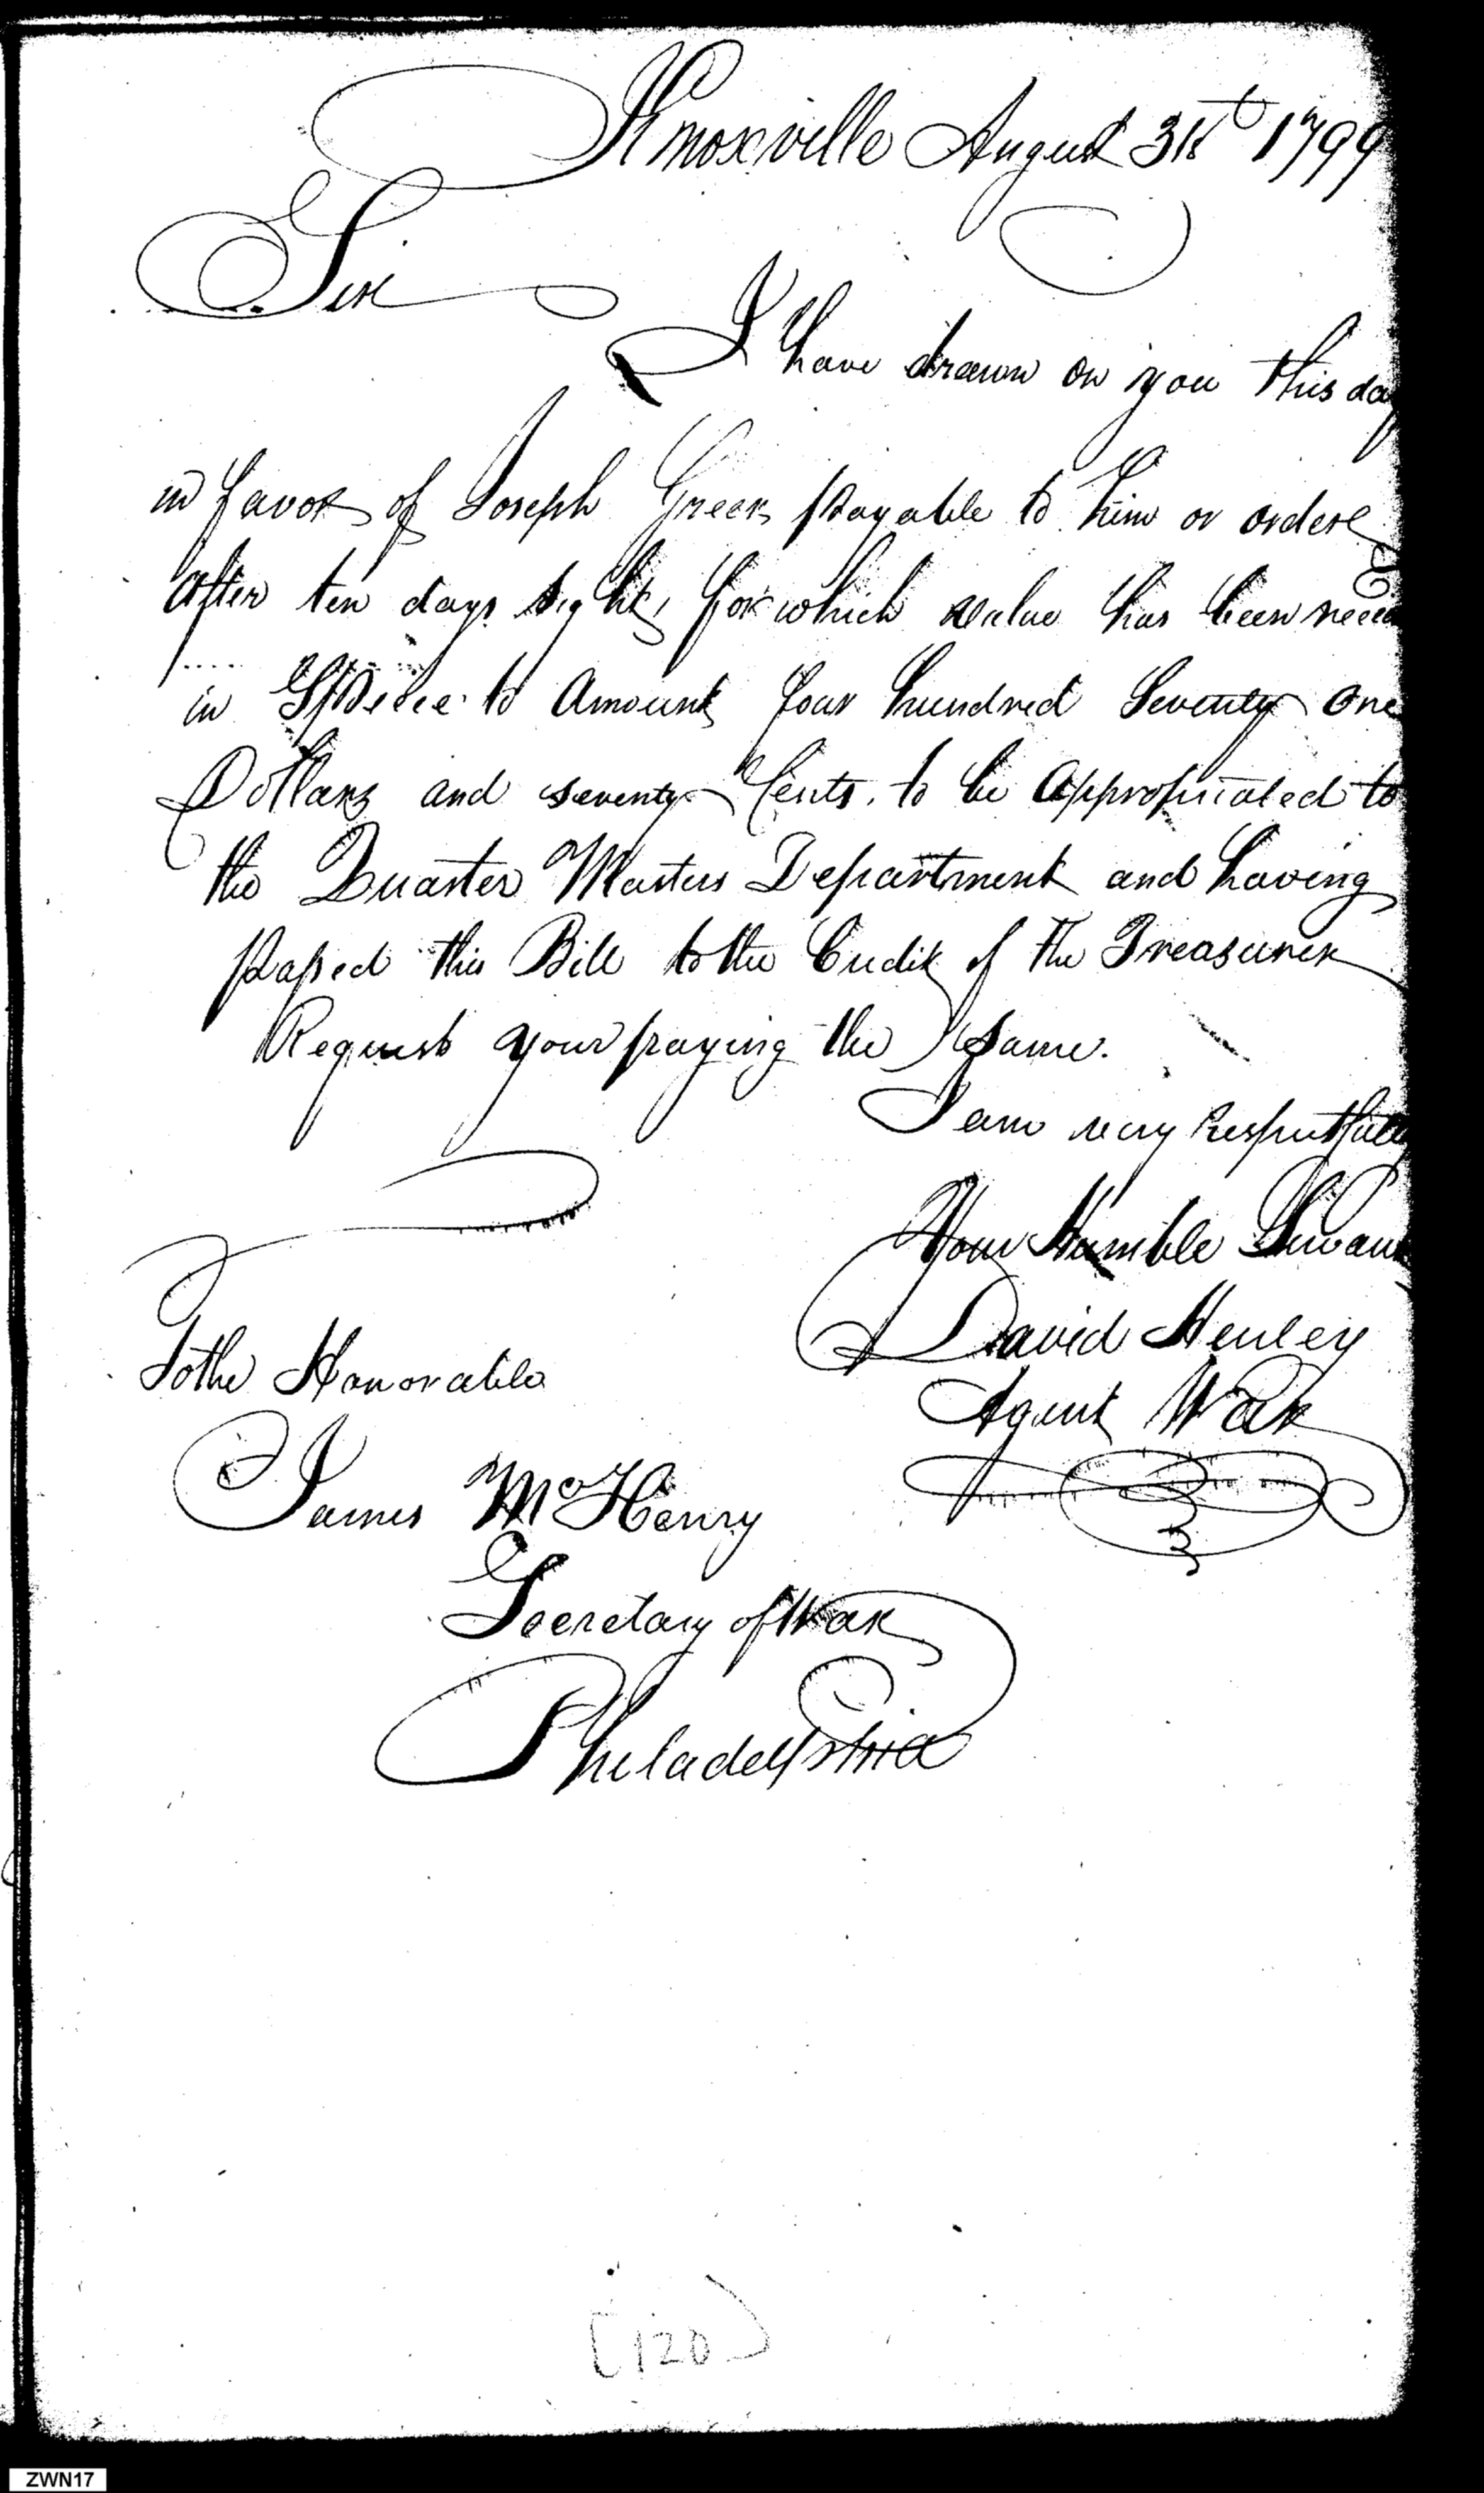 Knoxville August 31st 1799
Sir
I have drawn on you this day
in favor of Joseph Greer payable to him or order
after ten days sight, for which value has been recei
in Specie to Amount four hundred Seventy One
Dollars and seventy Cents, to be appropriated to
the Quarter Masters Department and having
passed this Bill to the Credit of the Treasurer
Request your paying the same.
I am very Respectfully
Your Humble Servan
David Henley
Agent War
To the Honorable
James McHenry
Secretary of War
Philadelphia
[120]
ZWN17